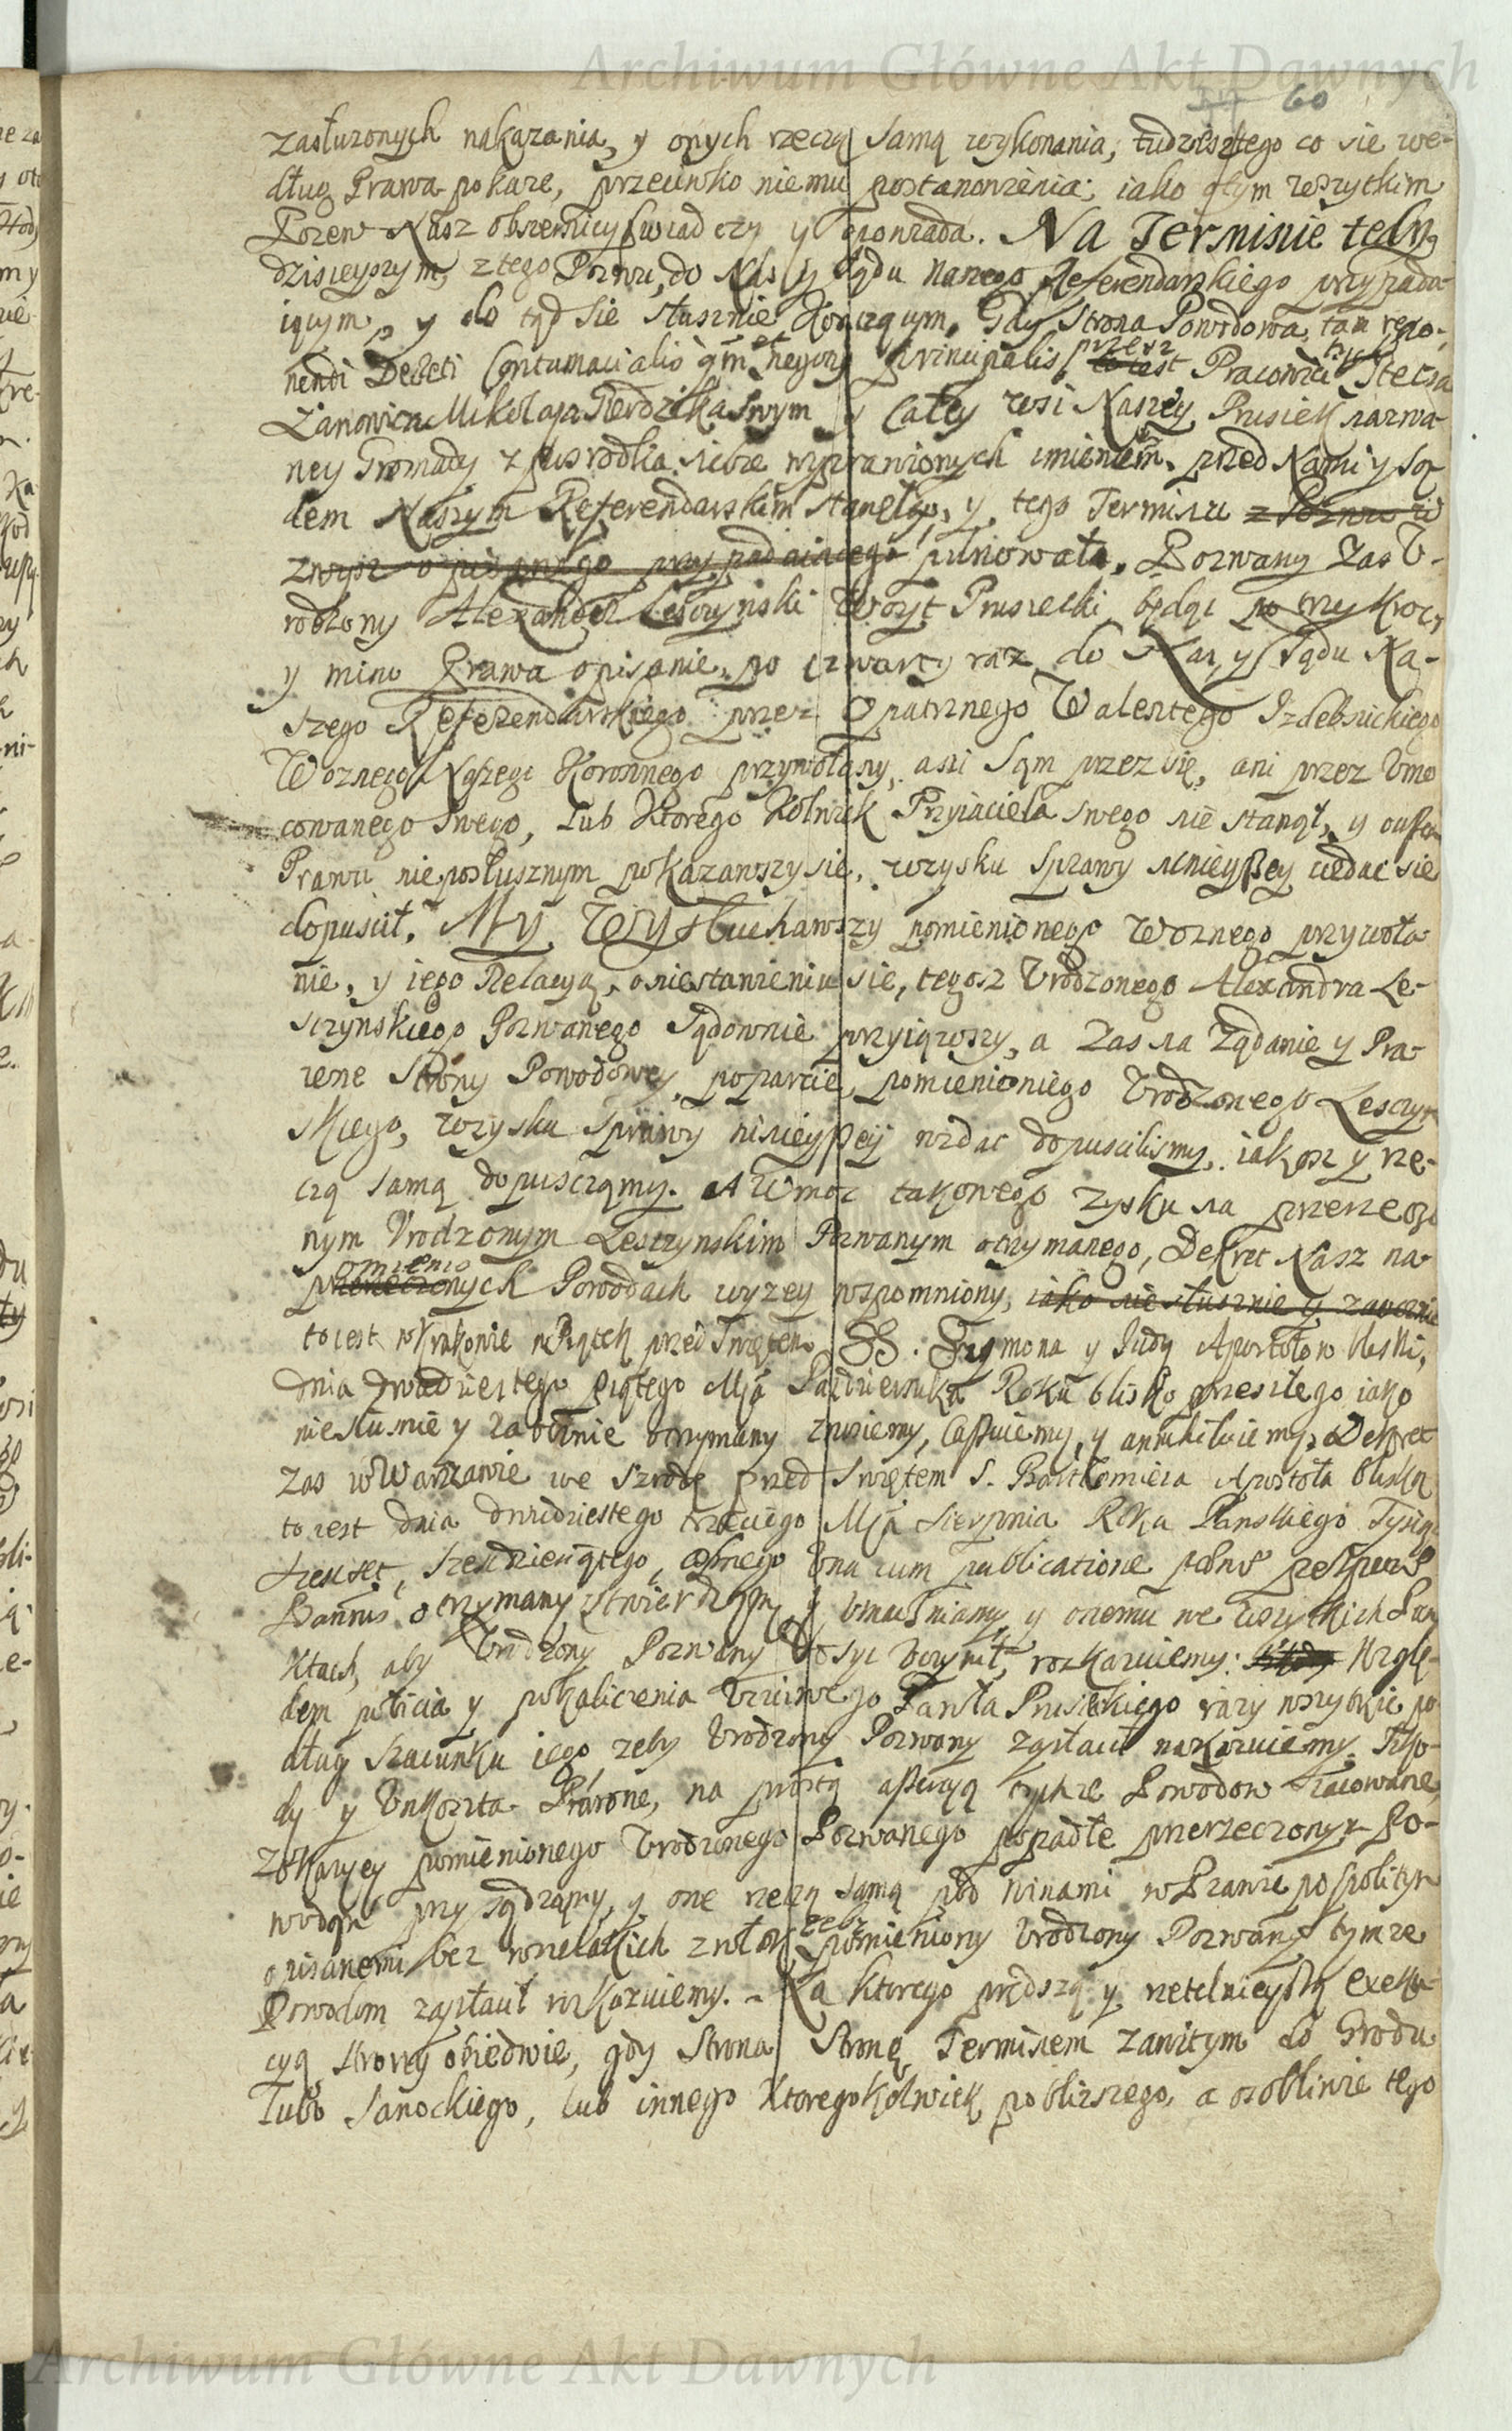 Archiwum Główne Akt Dawnych
60
zasłuzonych nakazania, y onych rzeczą samą wykonania, tudziesz tego co sie we-
dług Prawa pokaze, przeciwko niemu postanowienia; iako o tym wszytkim
Pozew Nasz obszerniey swiadczy y opowiada. Na Terminie tedy
dzisieyszym, z tego Pozwu, do Nas y Sądu Naszego Referendarskiego przypada-
iącym, y do tąd sie słusznie Kończącym, Gdy Strona Powodowa, tam repo-
nendi Decreti Contumacialis qm et negotij principalis, przez Pracowite Stecia
Zanowicza Mikołaja Pierdzika swym y Całey wsi Naszey Prusiek nazwa-
ney Gromady z posrodka siebie wyprawionych imieniem, przed Nami y Są-
dem Naszym Referendarskim stanęła, y tego Terminu z Pozwu w
zwysz opisanego przypadaiącego pilnowała. Pozwany Zas V-
rodzony Alexander Lesczynski Woyt Prusiecki, będąc po trzy Kroc,
y mimo Prawa opisanie, po czwarty raz do Nas, y Sądu Na-
szego Referendarskiego przez Opatrznego Walentego Izdebnickiego
Woznego Naszego Koronnego przywołany, ani sąm przez się, ani przez Vmo
cowanego swego, lub Ktorego Kolwiek Przyiaciela swego nie stanął, y owszem
Prawu nieposłusznym pokazawszy sie, wzysku sprawy ninieyszey wzdac sie
dopuscił. My Wysłuchawszy pomienionego Woznego przywoła-
nie, y iego Relacyą, o niestawieniu sie, tegosz Vrodzonego Alexandra Le-
sczynskiego Pozwanego Sądownie przyiąwszy, a Zas na Ządanie y Pra-
wne Strony Powodowey, poparcie, pomienioniego Vrodzonego Lesczyn
skiego, wzysku sprawy ninieyszey wzdac dopuscilismy, iakosz y rze-
czą samą dopusczamy. A Wmoc takowego zysku na przerzeczo
nym Vrodzonym Lesczynskim Pozwanym otrzymanego, Dekret Nasz na
pomienionych Powodach wyzey wspomniony, iako niesłusznie y zaocznie
to iest w Krakowie w Piątek przed swiętem SS. Szymona y Judy Apostołow bliski,
dnia dwadziestego piątego Mja Pazdziernika Roku blisko przeszłego iako
niesłusnie y zaocznie otrzymany znosiemy, Cassuiemy, y annihiluiemy, Dekret
zas w Warszawie we Szrodę przed swiętem S. Bartłomieia Apostoła bliską
to iest dnia dwudziestego trzeciego Mja Sierpnia Roku Panskiego Tysiąc
szescset, szescdziesiątego, osmego Vna cum publicatione
Bannis otrzymany stwierdzamy y vmacniamy y onemu we wszytkich Pun
ktach, aby Vrodzony Pozwany dosyc vczynił, rozkazuiemy: Wzglę-
dem pobicia y pokaliczenia Vczciwego Pawła Prusieckiego razy wszytkie po
dług szacunku iego zeby Vrodzony Pozwany zapłacił nakazuiemy. Szko-
dy y Vnkoszta Prawne, na prostą assercyą tychze Powodow szacowane,
z okazyey pomienionego Vrodzonego Pozwanego popadłe przerzeczonym Po-
wodom przysądzamy, y one rzeczą samą pod winami w Prawie pospolitym
opisanemi bez wszelakich zwłok zeby pomieniony Vrodzony Pozwany tymze
Powodom zapłacił rozkazuiemy. - Na ktorego prędszą y rzetelnieyszą exeku-
cyą strony obiedwie, gdy Strona Stronę Terminem zawitym do Grodu
lubo Sanockiego, lub innego Ktoregokolwiek poblizszego, a osobliwie tego
Archiwum Główne Akt Dawnych